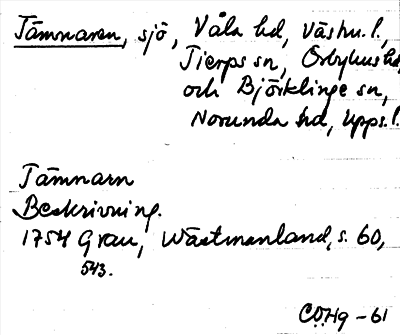 Tämnaren, sjö, Våla hd, Västm. l.,
Tierps sn, Örbyhus hd,
och Björklinge sn,
Norunda hd, Upps. l.
Tämnarn
Beskrivning.
1754 Grau, Wästmanland, s. 60,
543.
CÖHg -61